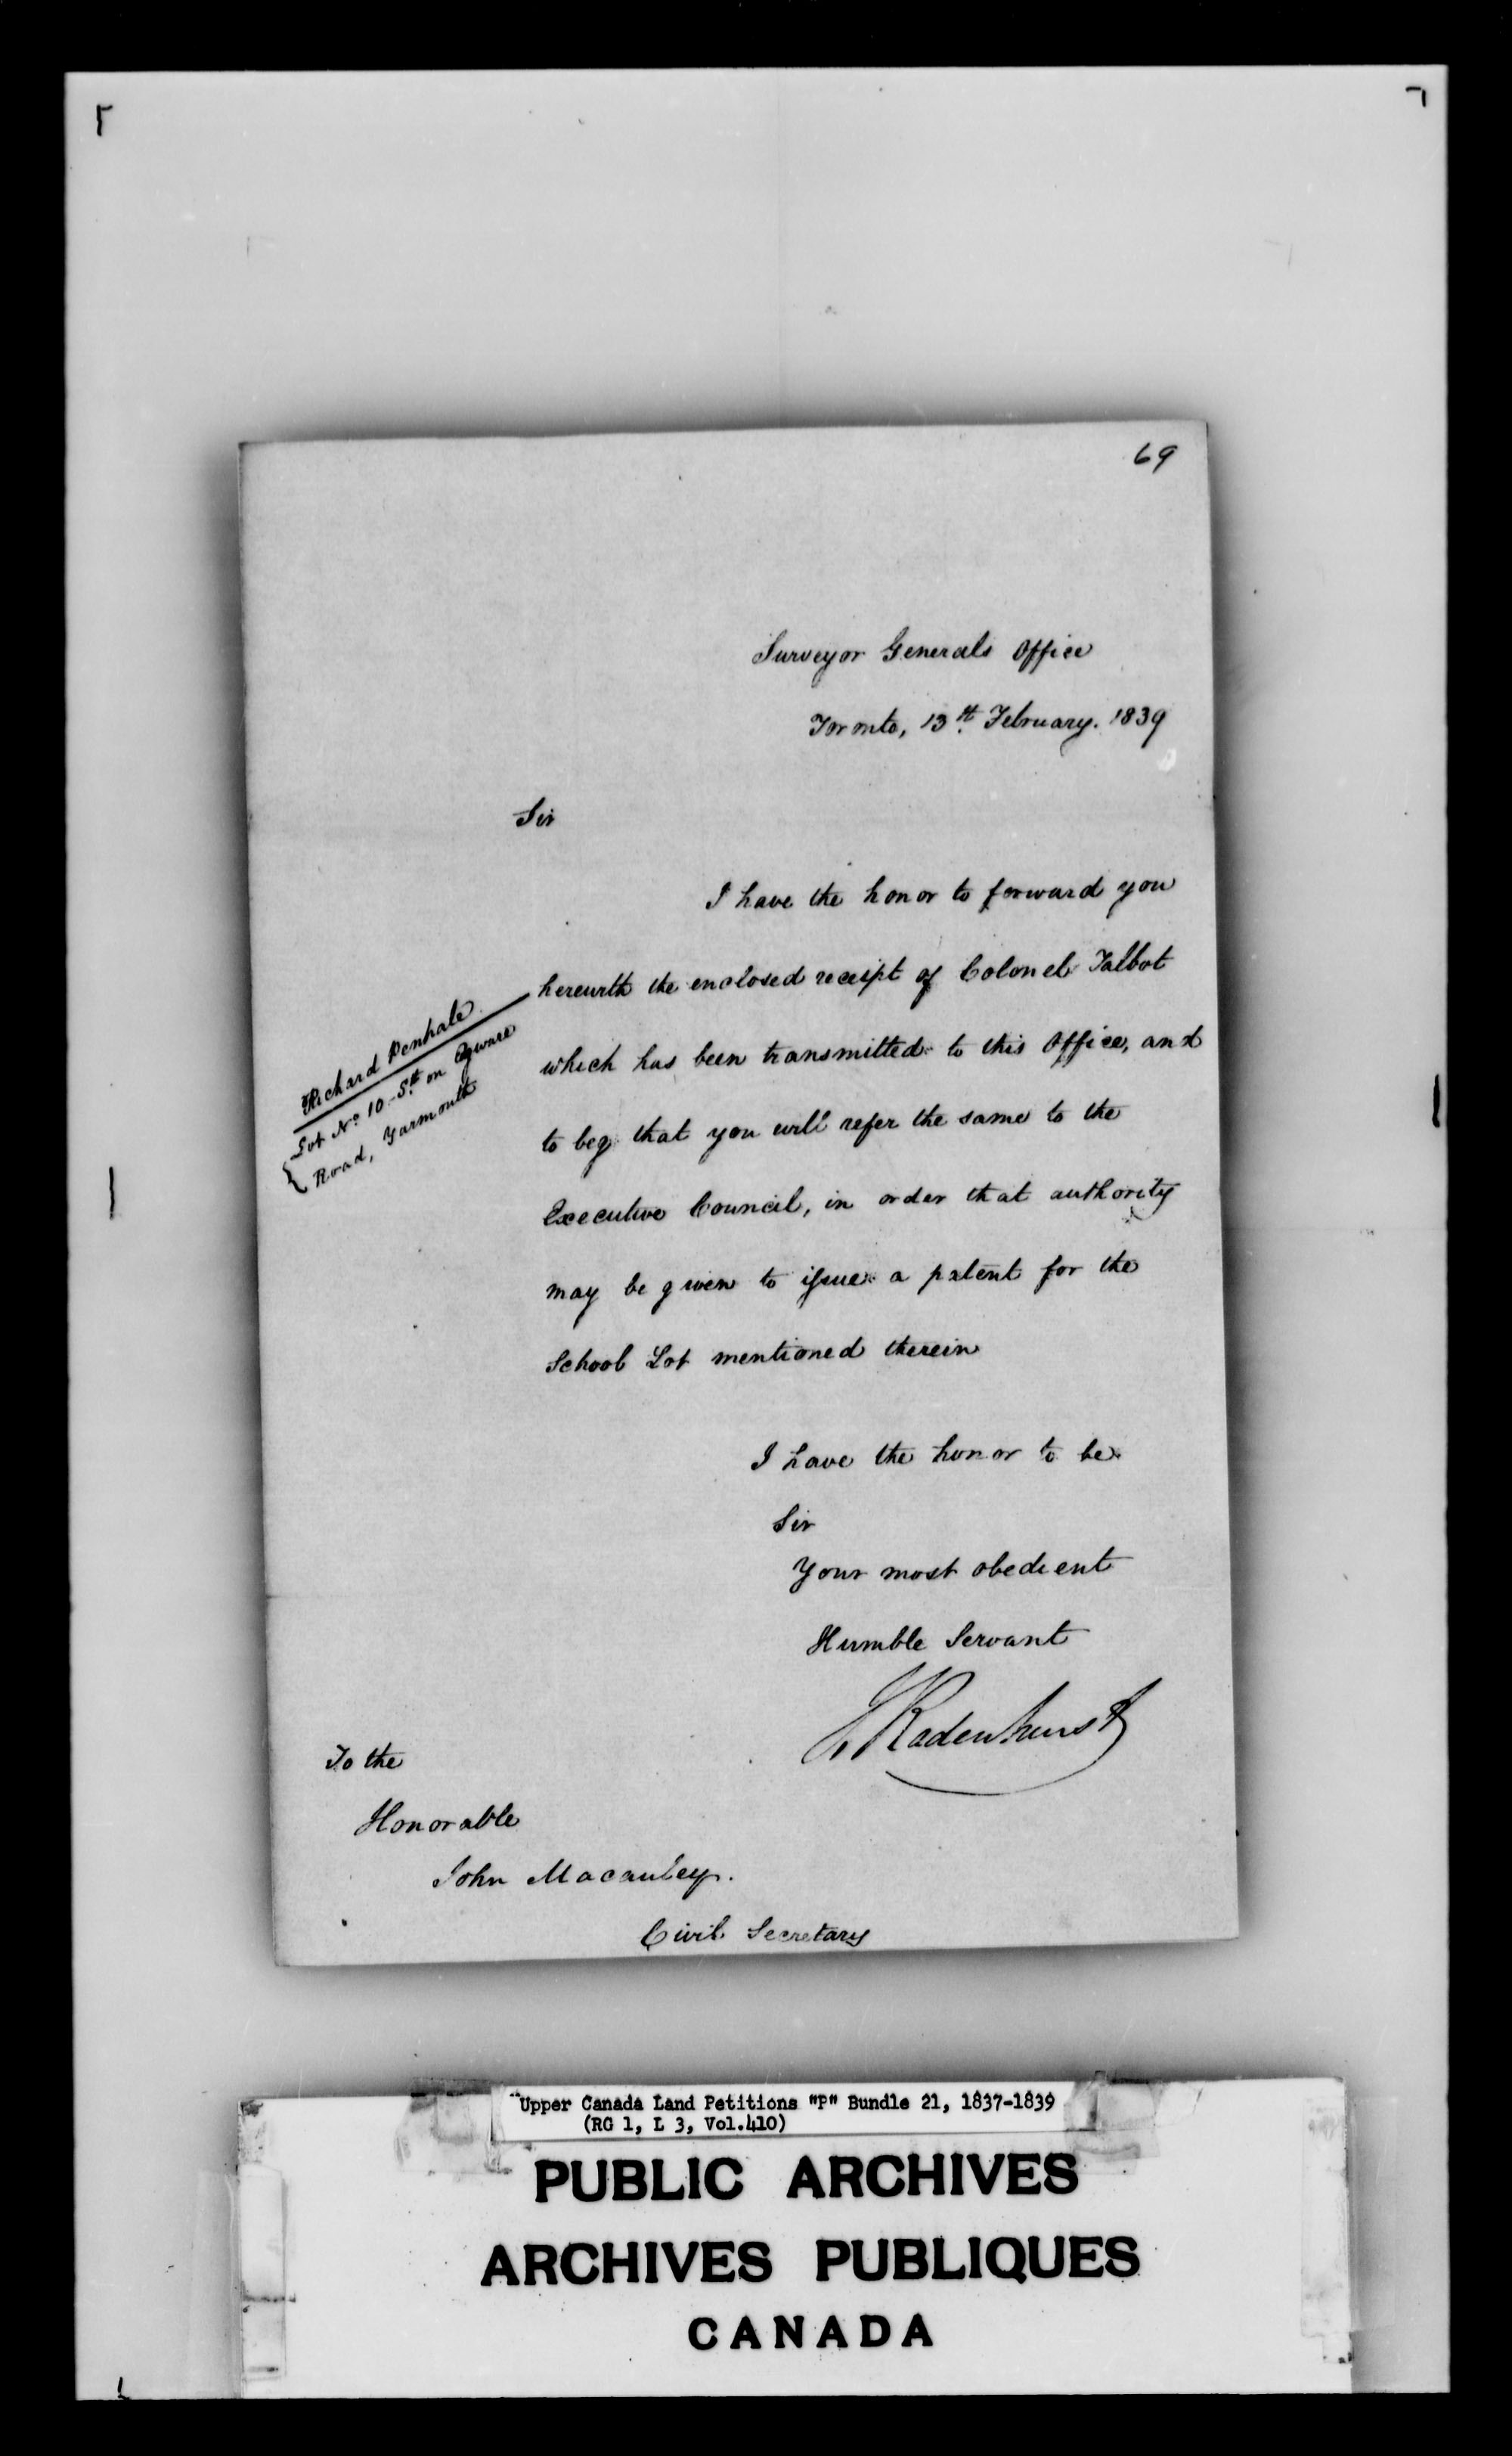 69
Surveyor Generals Office
Toronto, 13th February. 1839
Sir
I have the honor to forward you
herewith the enclosed receipt of Colonel Talbot
which has been transmitted to this Office, and
to beg that you will refer the same to the
Executive Council, in order that authority
may be given to issue a patent for the
School Lot mentioned therein
Richard Penhale
Lot No 10 - Sth on Egware
Road, Yarmouth
I have the honor to be
Sir
Your most obedient
Humble Servant
J Radenhurst
To the
Honorable
John Macauley.
Civil Secretary
"Upper Canada Land Petitions "P" Bundle 21, 1837-1839
(RG 1, L 3, Vol.410)
PUBLIC ARCHIVES
ARCHIVES PUBLIQUES
CANADA